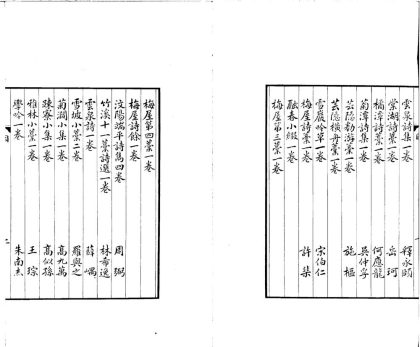 雲泉詩集一卷 釋永頤
棠湖詩藁一卷 岳珂
橘潭詩藁一卷 何應龍
菊潭詩集一卷 吳仲孚
芸隱勌游藁一卷 施樞
芸隱橫舟藁一卷
雪巖吟草一卷 宋伯仁
梅屋詩藁一卷 許棐
融春小綴一卷
梅屋第三藁一卷
梅屋第四藁一卷
梅屋詩餘一卷
汶陽端平詩雋四卷 周弼
竹溪十一藁詩選一卷 林希逸
雲泉詩一卷 薛嵎
雪坡小藁二卷 羅與之
菊磵小集一卷 高九萬
疎寮小集一卷 高似孫
雅林小藁一卷 王琮
學吟一卷 朱南杰